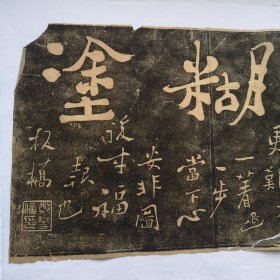 糊塗
更難
一着退
一步
當下心
安非圖
後来福
報也
板橋